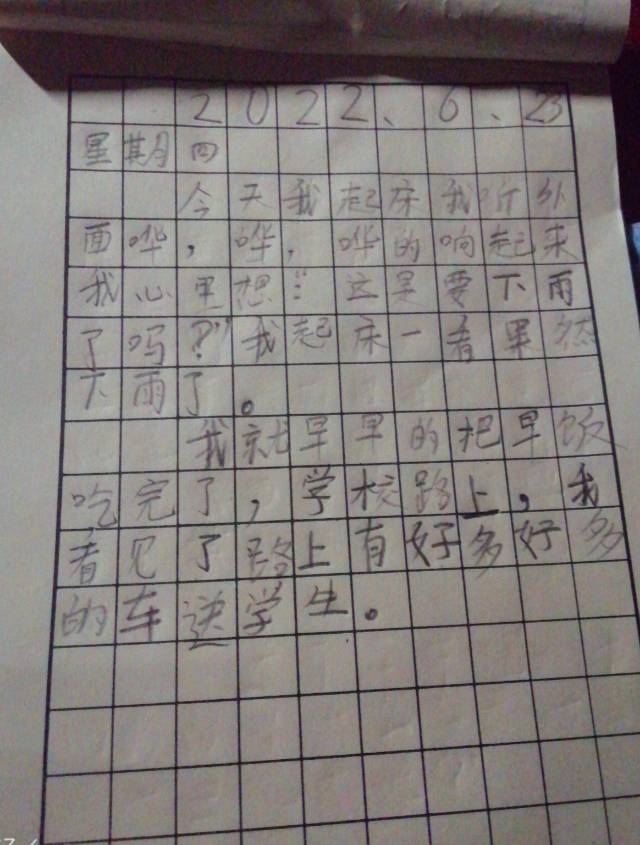 2022、6、23
星期四
今天我起床我听外
面哗，哗，哗的响起来
我心里想：“这是要下雨
了吗？”我起床一看果然
下雨了。
我就早早的把早饭
吃完了，学校路上，我
看见了路上有好多好多
的车送学生。